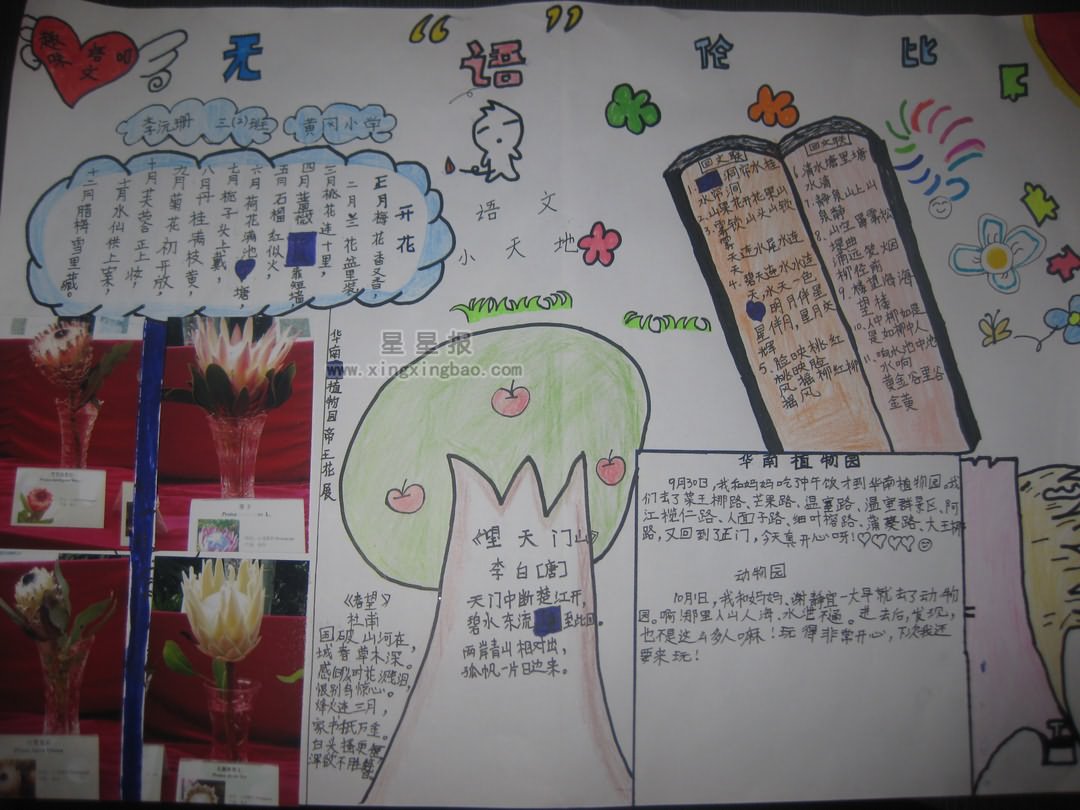 趣味语文吧
无“语”伦比
李沅珊 三(2)班 黄冈小学
语文
小天地
开花
正月梅花香又香，
二月兰花盆里装，
三月桃花连十里，
四月蔷薇靠短墙，
五月石榴红似火，
六月荷花满池塘，
七月栀子头上戴，
八月丹桂满枝黄，
九月菊花初开放，
十月芙蓉正上妆，
十一月水仙供上案，
十二月腊梅雪里藏。
星星报
www.xingxingbao.com
华南植物园帝王花展
《春望》
杜甫
国破山河在，
城春草木深。
感时花溅泪，
恨别鸟惊心。
烽火连三月，
家书抵万金。
白头搔更短，
浑欲不胜簪。
《望天门山》
李白[唐]
天门中断楚江开，
碧水东流至此回。
两岸青山相对出，
孤帆一片日边来。
回文联
1.洞帘水挂
水帘洞
2.山果花开花果山
3.雾锁山头山锁
雾
天连水尾水连
天
4.碧天连水水连
天，水天一色
明月伴星
星伴月，星月交
辉
5.脸映桃红
桃映脸
风摇柳红柳
摇风
回文联
6.清水塘里塘
水清
7.静泉山上山
泉静
9.楼望海海
望楼
10.人中柳如是
是如柳中人
11.响水池中池
水响
黄金谷里谷
金黄
华南植物园
9月30日，我和妈妈吃过午饭才到华南植物园。我
们去了菜王椰路、芒果路、温室路、温室群景区、阿
江榄仁路、人面子路、细叶榕路、蒲葵路、大王椰
路，又回到了正门，今天真开心呀！
动物园
10月1日，我和妈妈、谢静宜一大早就去了动物
园。啊！那里人山人海、水泄不通。进去后，发现，
也不是这么多人嘛！玩得非常开心，下次我还
要来玩！